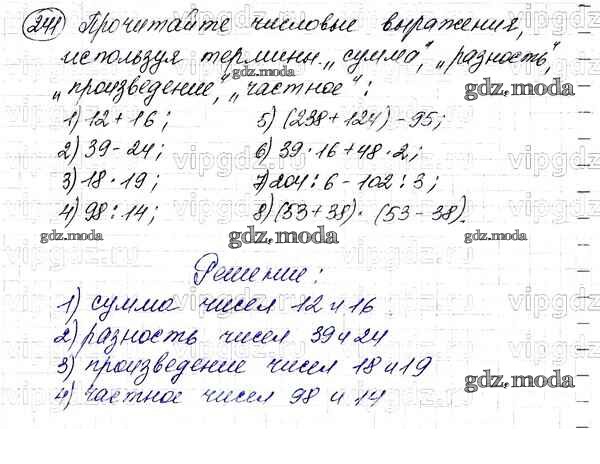 241 Прочитайте числовые выражения,
используя термины „сумма“, „разность“,
„произведение“, „частное“:
1) 12 + 16; 5) (238 + 124) - 95;
2) 39 - 24; 6) 39 · 16 + 48 · 2;
3) 18 · 19; 7) 204 : 6 - 102 : 3;
4) 98 : 14; 8) (53 + 38) · (53 - 38).
Решение:
1) сумма чисел 12 и 16
2) разность чисел 39 и 24
3) произведение чисел 18 и 19
4) частное чисел 98 и 14
gdz.moda
gdz.moda
gdz.moda
gdz.moda
gdz.moda
gdz.moda